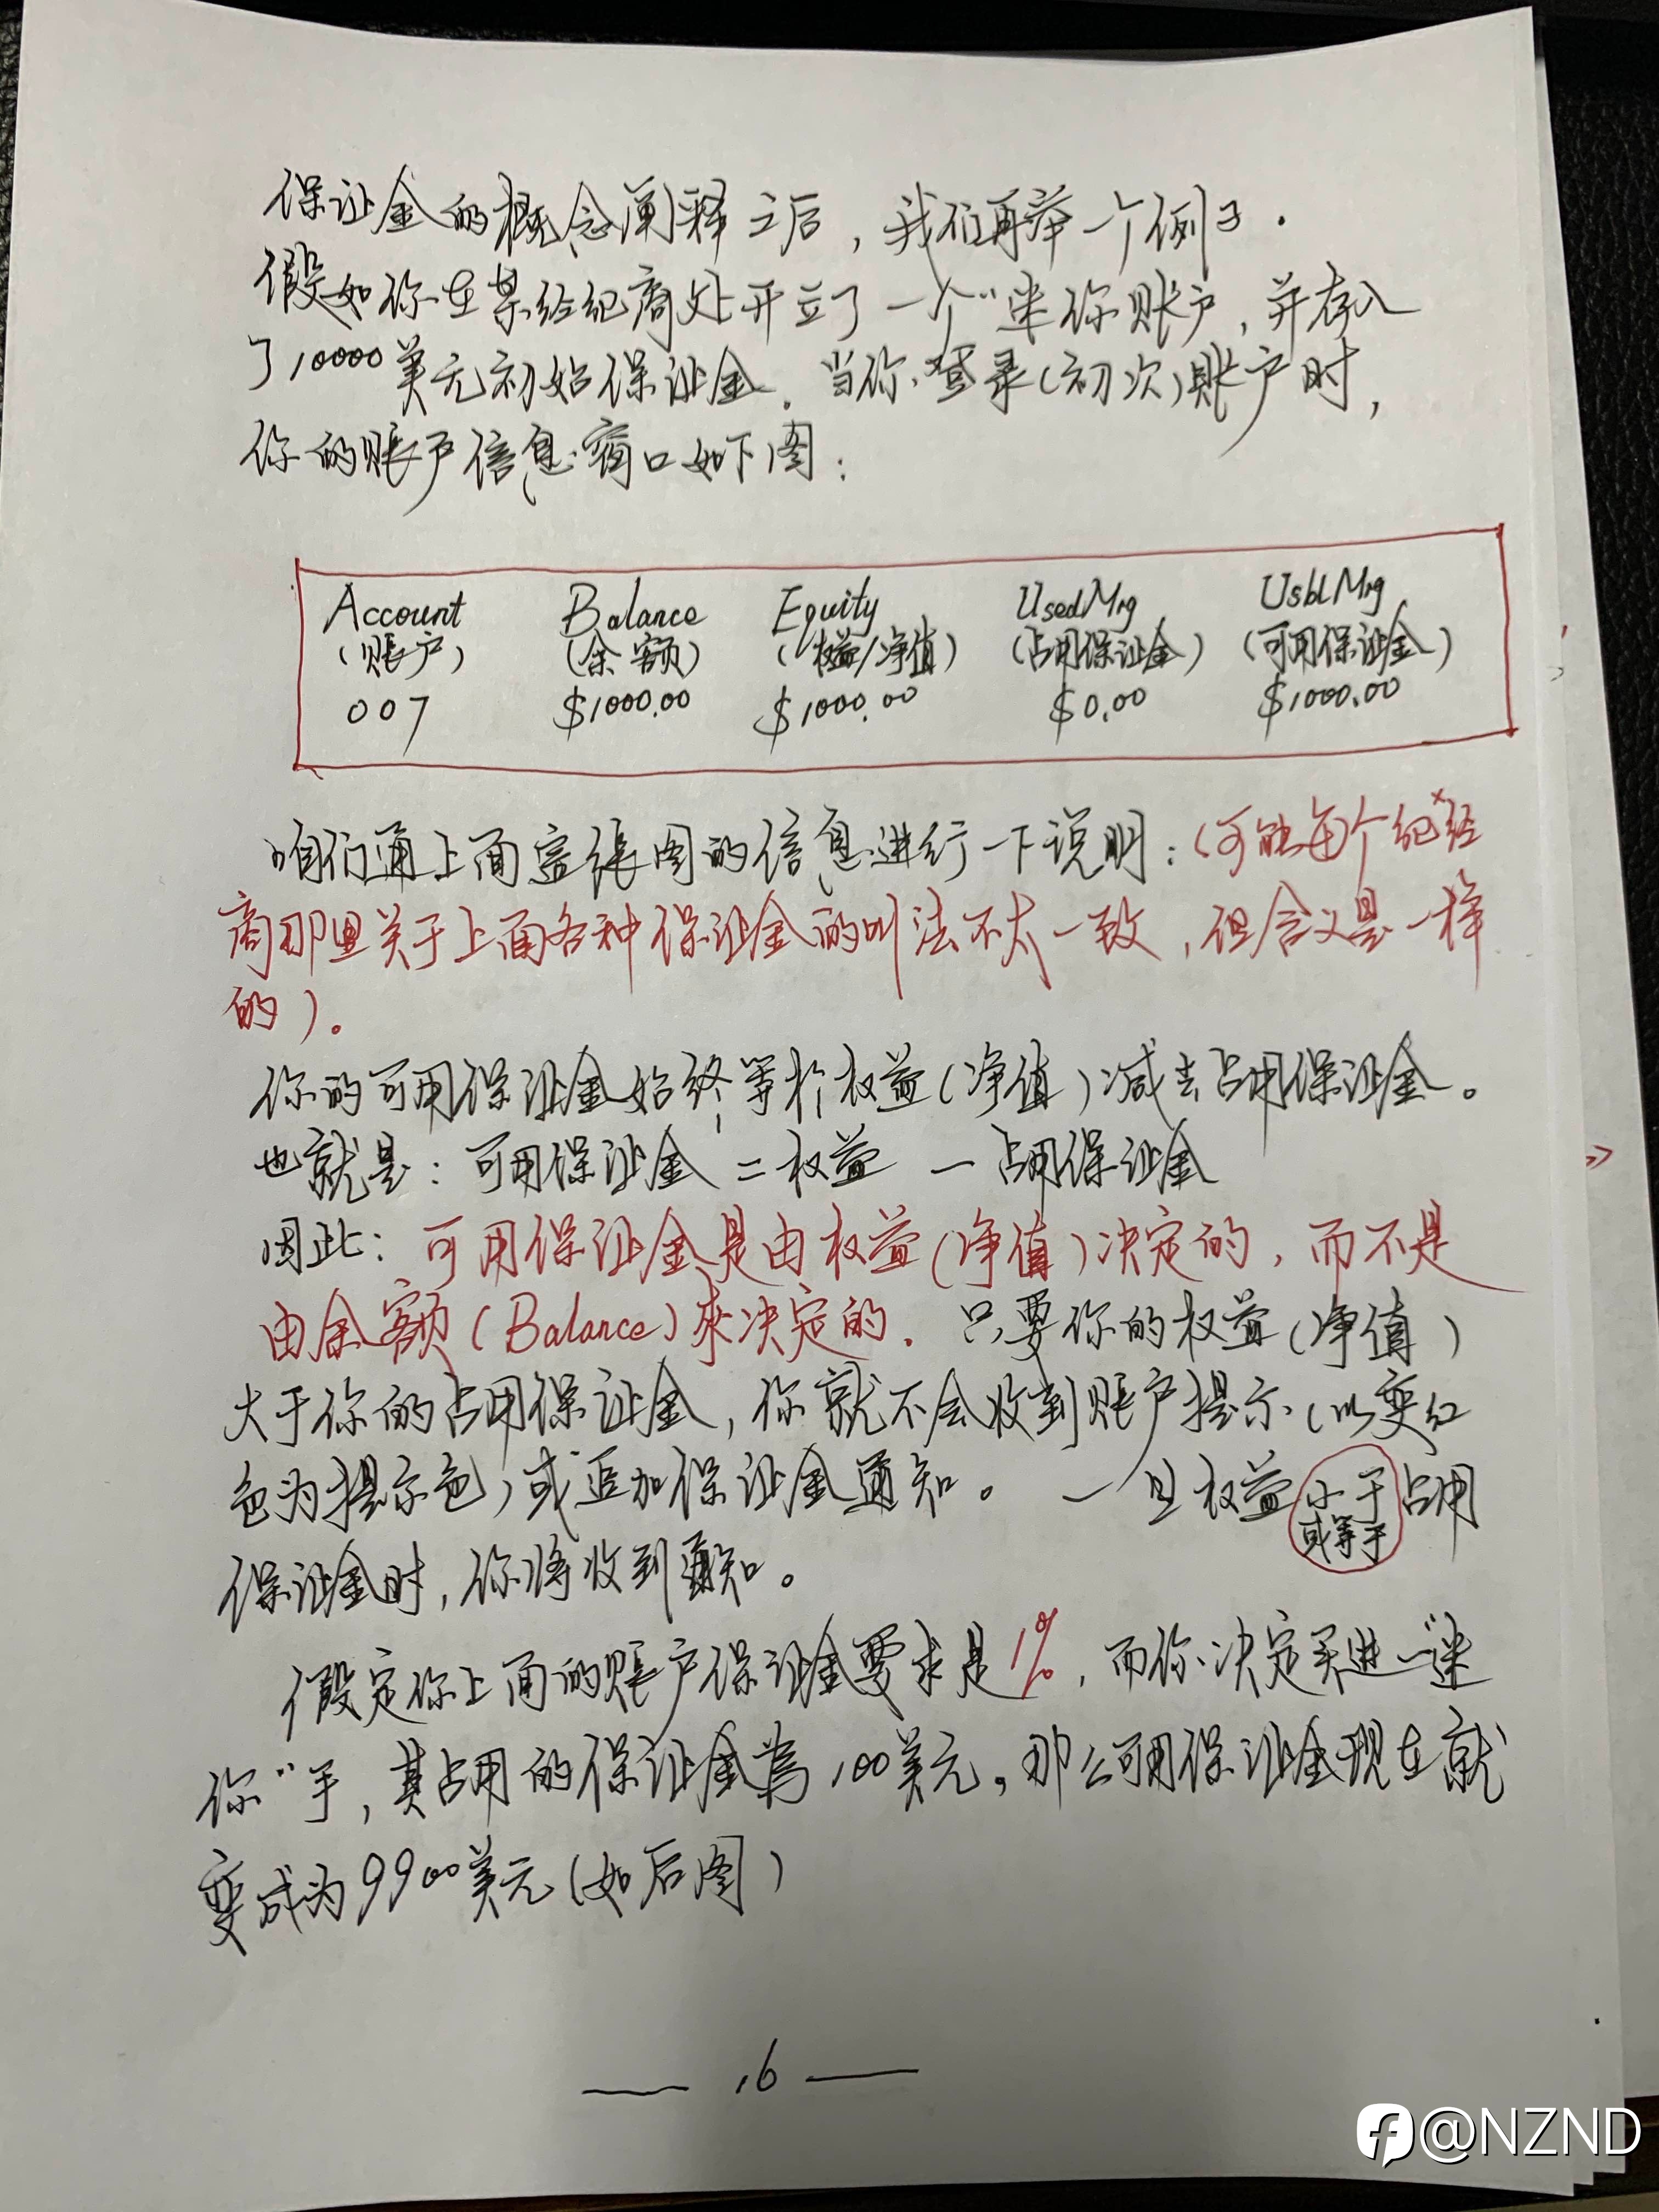 保证金的概念阐释之后，我们再举一个例子．
假如你在某经纪商处开立了一个“迷你账户，并存入
了10000美元初始保证金．当你登录(初次)账户时，
你的账户信息窗口如下图：
Account Balance Equity UsedMrg UsblMrg
(账户) (余额) (权益/净值) (占用保证金) (可用保证金)
007 $1000.00 $1000.00 $0.00 $1000.00
咱们通上面这张图的信息进行一下说明：(可能每个纪经
商那里关于上面各种保证金的叫法不太一致，但含义是一样
的)。
你的可用保证金始终等於权益(净值)减去占用保证金。
也就是：可用保证金＝权益－占用保证金
因此：可用保证金是由权益(净值)决定的，而不是
由余额(Balance)来决定的．只要你的权益(净值)
大于你的占用保证金，你就不会收到账户提示(以变红
色为提示色)或追加保证金通知。一旦权益小于占用
或等于
保证金时，你将收到通知。
假定你上面的账户保证金要求是1%，而你决定买进一“迷
你”手，其占用的保证金为100美元。那么可用保证金现在就
变成为9900美元(如后图)
— 16 —
@NZND